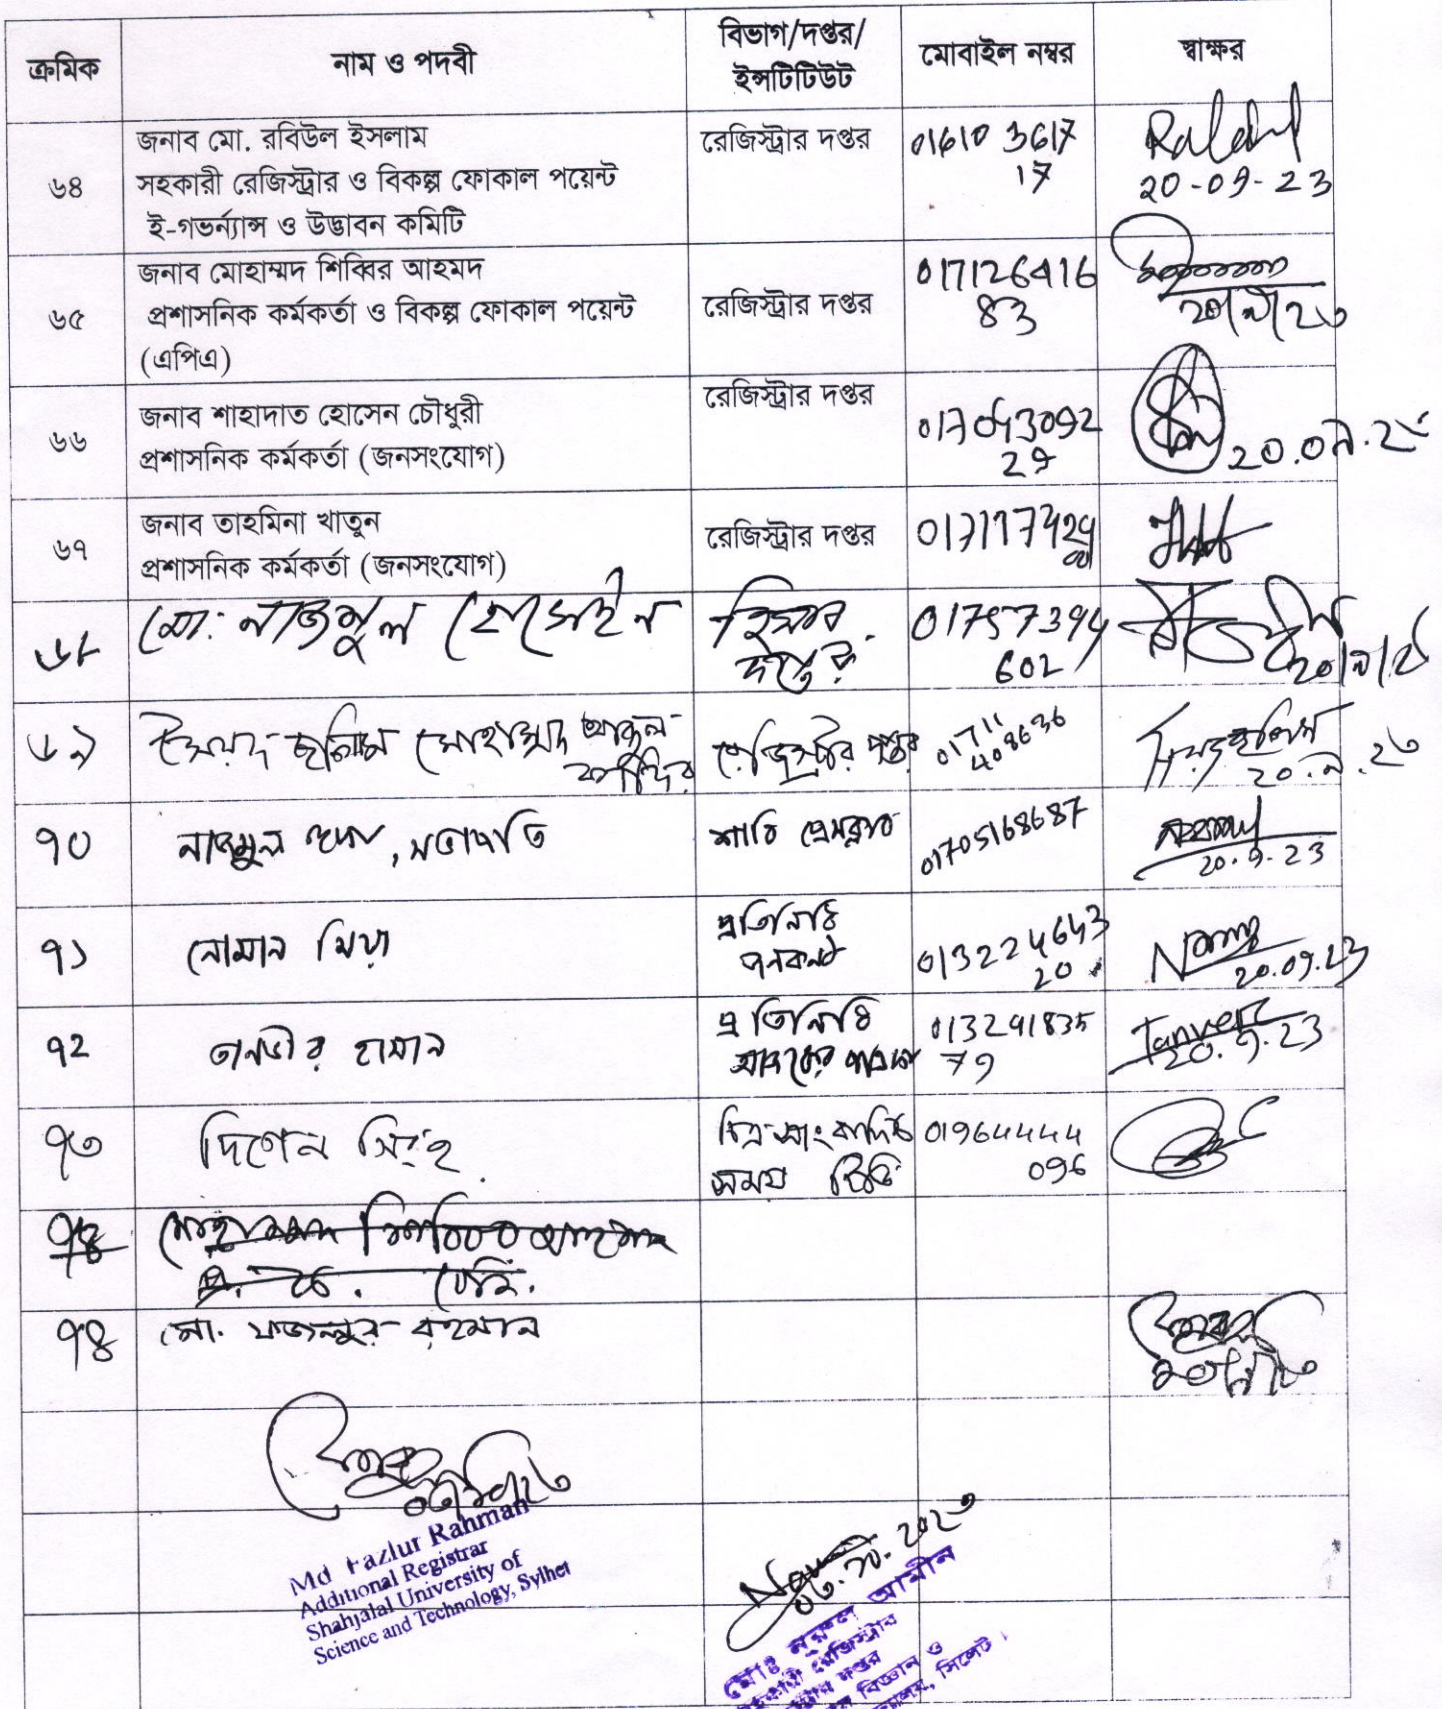 ক্রমিক
নাম ও পদবী
বিভাগ/দপ্তর/
ইন্সটিটিউট
মোবাইল নম্বর
স্বাক্ষর
৬৪
জনাব মো. রবিউল ইসলাম
সহকারী রেজিস্ট্রার ও বিকল্প ফোকাল পয়েন্ট
ই-গভর্ন্যান্স ও উদ্ভাবন কমিটি
রেজিস্ট্রার দপ্তর
01610 3617
17
20-09-23
৬৫
জনাব মোহাম্মদ শিব্বির আহমদ
প্রশাসনিক কর্মকর্তা ও বিকল্প ফোকাল পয়েন্ট
(এপিএ)
রেজিস্ট্রার দপ্তর
017126416
83
২০/৯/২৩
৬৬
জনাব শাহাদাত হোসেন চৌধুরী
প্রশাসনিক কর্মকর্তা (জনসংযোগ)
রেজিস্ট্রার দপ্তর
29
৬৭
জনাব তাহমিনা খাতুন
প্রশাসনিক কর্মকর্তা (জনসংযোগ)
রেজিস্ট্রার দপ্তর
৬৮
মো: নাজমুল হোসেইন
হিসাব
দপ্তর
01757394
602
৬৯
সৈয়দ মোহাম্মদ আব্দুল
কাদির
রেজিস্ট্রার দপ্তর
01711
408636
৭০
নাজমুল হুদা, সভাপতি
শাবি প্রেসক্লাব
01705168687
20.9.23
৭১
নোমান মিয়া
প্রতিনিধি
01322 4643
20
20.09.23
৭২
তানভীর হাসান
প্রতিনিধি
আজকের পত্রিকা
013291835
79
Tanveer
20.9.23
৭৩
দিগেন সিংহ
চিত্র সাংবাদিক
সময় টিভি
01964444
096
৭৪
মোহাম্মদ শিব্বির আহমদ
৭৪
মো. ফজলুর রহমান
Md Fazlur Rahman
Additional Registrar
Shahjalal University of
Science and Technology, Sylhet
মোঃ নুরুল আমীন